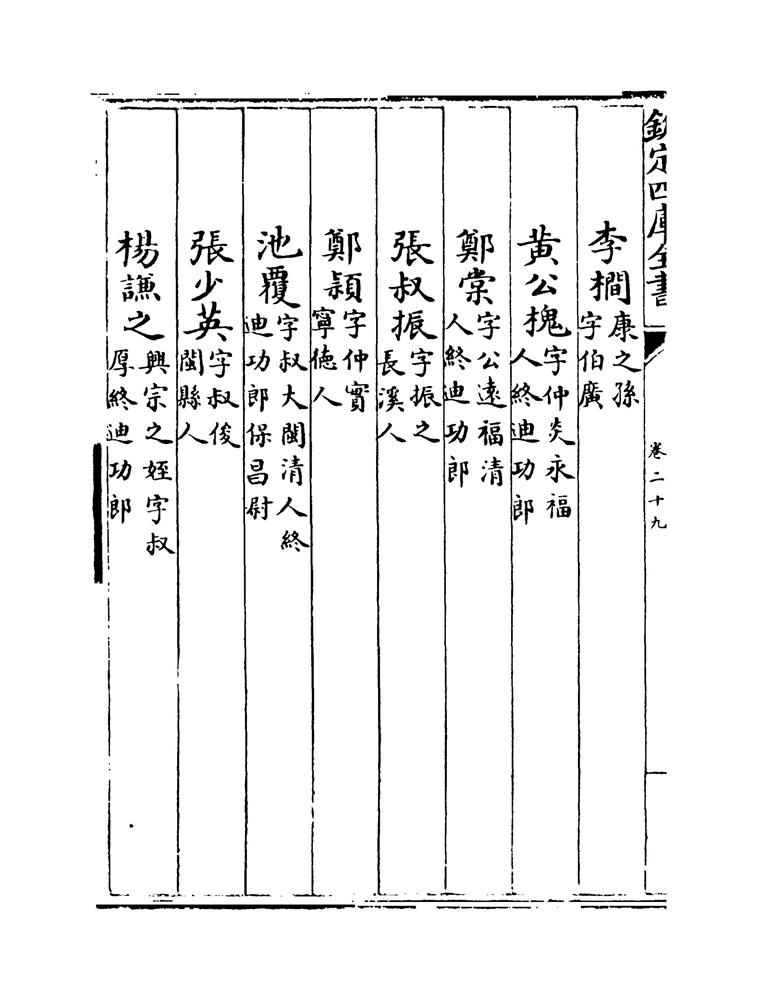 欽定四庫全書
卷二十九
李橺康之孫字伯廣
黄公槐字仲炎永福人終迪功郎
鄭棠字公遠福清人終迪功郎
張叔振字振之長溪人
鄭頴字仲實寧德人
池覆字叔大閩清人終迪功郎保昌尉
張少英字叔俊閩縣人
楊謙之興宗之姪字叔厚終迪功郎